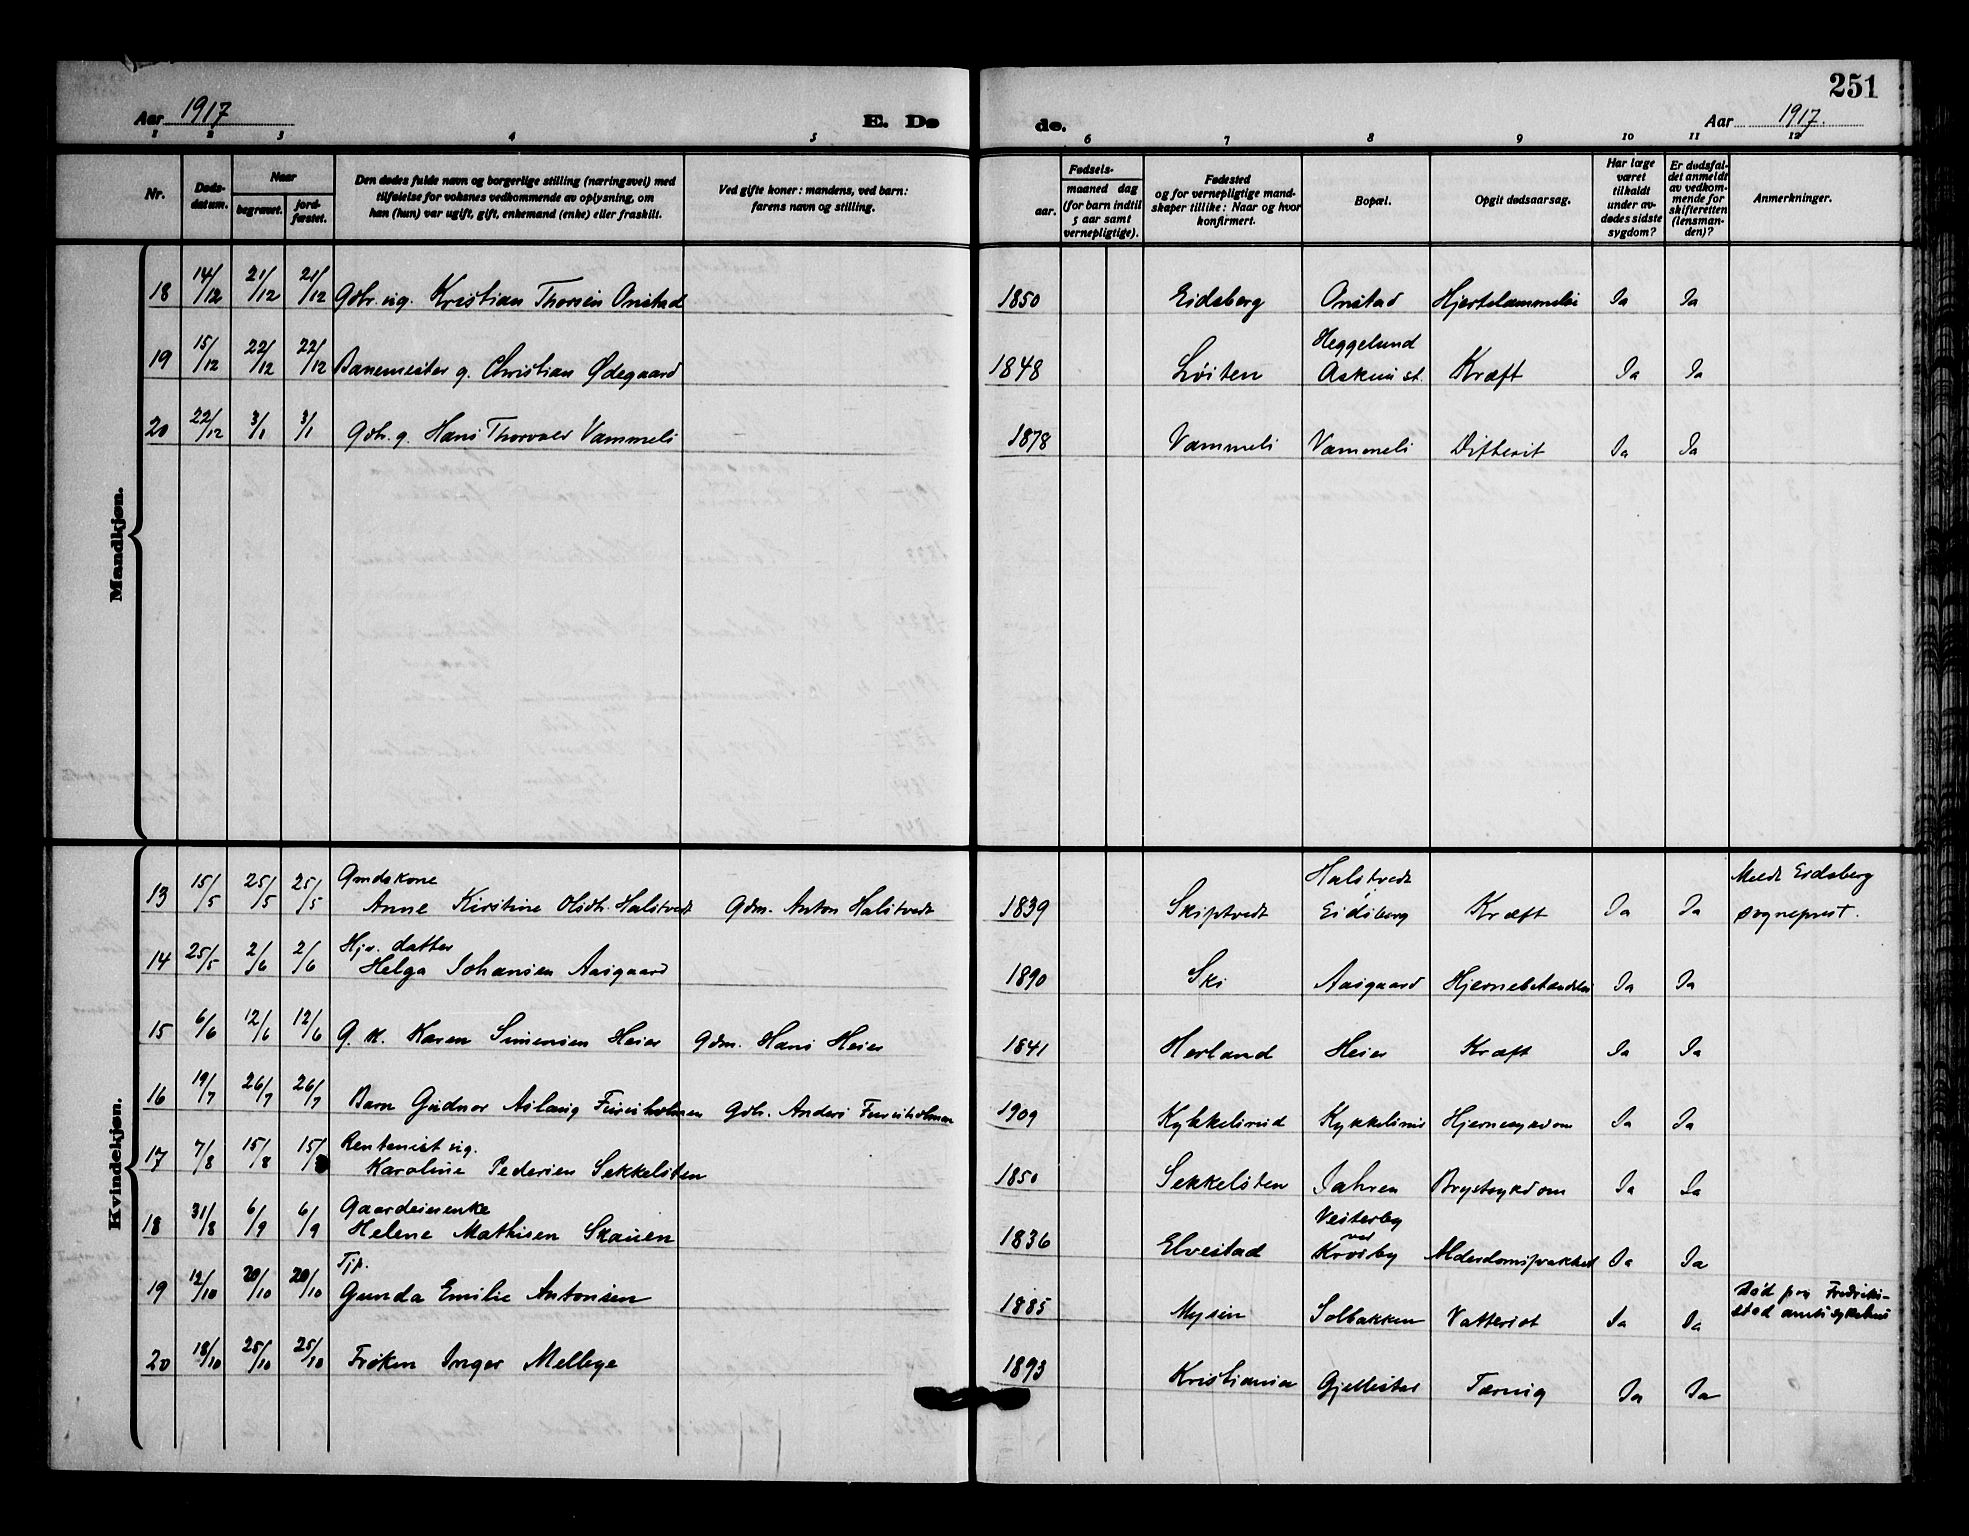 251
Aar 1917
E. Dø
de.
Aar 1917.
1 2 3 4 5 6 7 8 9 10 11 12
Nr.
Døds-
datum.
Naar
begravet.
jord-
fæstet.
Den dødes fulde navn og borgerlige stilling (næringsvei) med
tilføielse for voksnes vedkommende av oplysning, om
han (hun) var ugift, gift, enkemand (enke) eller fraskilt.
Ved gifte koner: mandens, ved barn:
farens navn og stilling.
Fødsels-
aar.
maaned dag
(for barn indtil
5 aar samt
vernepligtige).
Fødested
og for vernepligtige mand-
skaper tillike: Naar og hvor
konfirmert.
Bopæl.
Opgit dødsaarsag.
Har læge
været
tilkaldt
under av-
dødes sidste
sygdom?
Er dødsfal-
det anmeldt
av vedkom-
mende for
skifteretten
(lensman-
den)?
Anmerkninger.
Mandkjøn.
18 14/12 21/12 21/12 Gbr. ug. Kristian Thorsen Onstad 1850 Eidsberg Onstad Hjertelammelse Ja Ja
19 15/12 22/12 22/12 Banemester g. Christian Ødegaard 1848 Løiten Heggelund
Askim st. Kræft Ja Ja
20 22/12 3/1 3/1 Gbr. g. Hans Thorvald Vammeli 1878 Vammeli Vammeli Difterit Ja Ja
Kvindekjøn.
13 15/5 25/5 25/5 Gmdskone
Anne Kirstine Olsdtr. Halstvedt Gdm. Anton Halstvedt 1839 Skiptvedt Halstvedt
Eidsberg Kræft Ja Ja Meldt Eidsberg
sogneprest.
14 25/5 2/6 2/6 Hjv. datter
Helga Johansen Aasgaard 1890 Ski Aasgaard Hjernebetændelse Ja Ja
15 6/6 12/6 12/6 G. K. Karen Simensen Heier Gdm. Hans Heier 1841 Herland Heier Kræft Ja Ja
16 19/7 26/7 26/7 Barn Gudnor Aslaug Furuholmen Gbr. Anders Furuholmen 1909 Kykkelsrud Kykkelsrud Hjernesykdom Ja Ja
17 7/8 15/8 15/8 Rentenist ug.
Karoline Pedersen Sekkelsten 1850 Sekkelsten Jahren Brystsykdom Ja Ja
18 31/8 6/9 6/9 Gaardeierenke
Helene Mathisen Skauen 1836 Elvestad Vesterby
ved
Krosby Alderdomssvakhed Ja Ja
19 12/10 20/10 20/10 Tjp.
Gunda Emilie Antonsen 1885 Mysen Solbakken Vattersot Ja Ja Død paa Fredrik-
stad amtssykehus
20 18/10 25/10 25/10 Frøken Inger Mellbye 1893 Kristiania Gjellestad Tæring Ja Ja